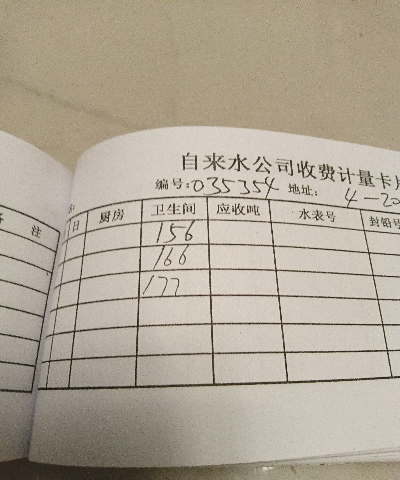 自来水公司收费计量卡片
编号:035354 地址: 4-20
备 注
日 厨房 卫生间 应收吨 水表号 封铅号
156
166
177